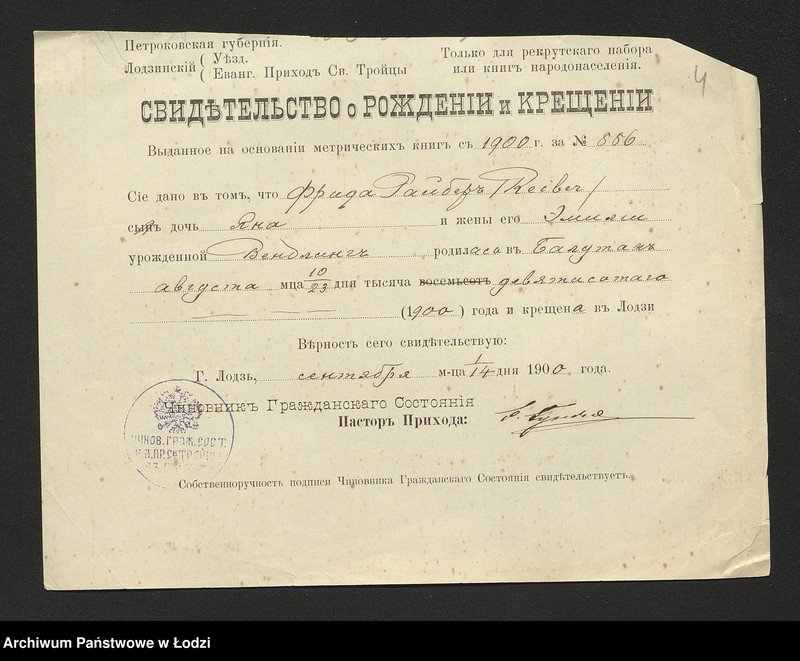 Петроковская губернія.
Лодзинскій ( Уѣзд.
( Еванг. Приходъ Св. Тройцы
Только для рекрутскаго набора
или книгъ народонаселенія.
4
СВИДѢТЕЛЬСТВО о РОЖДЕНІИ и КРЕЩЕНІИ
Выданное на основаніи метрическихъ книгъ съ 1900 г. за № 556
Сіе дано въ томъ, что Фрида Райберъ /Reiber/
сынъ дочь Яна и жены его Эмиліи
урожденной Вендлингъ родилась въ Балутахъ
августа мца 10/23 дня тысяча восемьсотъ девятисотаго
(1900) года и крещена въ Лодзи
Вѣрность сего свидѣтельствую:
Г. Лодзь, сентября м-ца 1/14 дня 1900 года.
Чиновникъ Гражданскаго Состоянія
Пасторъ Прихода:
ЧИНОВ. ГРАЖ. СОСТ.
Собственноручность подписи Чиновника Гражданскаго Состоянія свидѣтельствуетъ.
Archiwum Państwowe w Łodzi